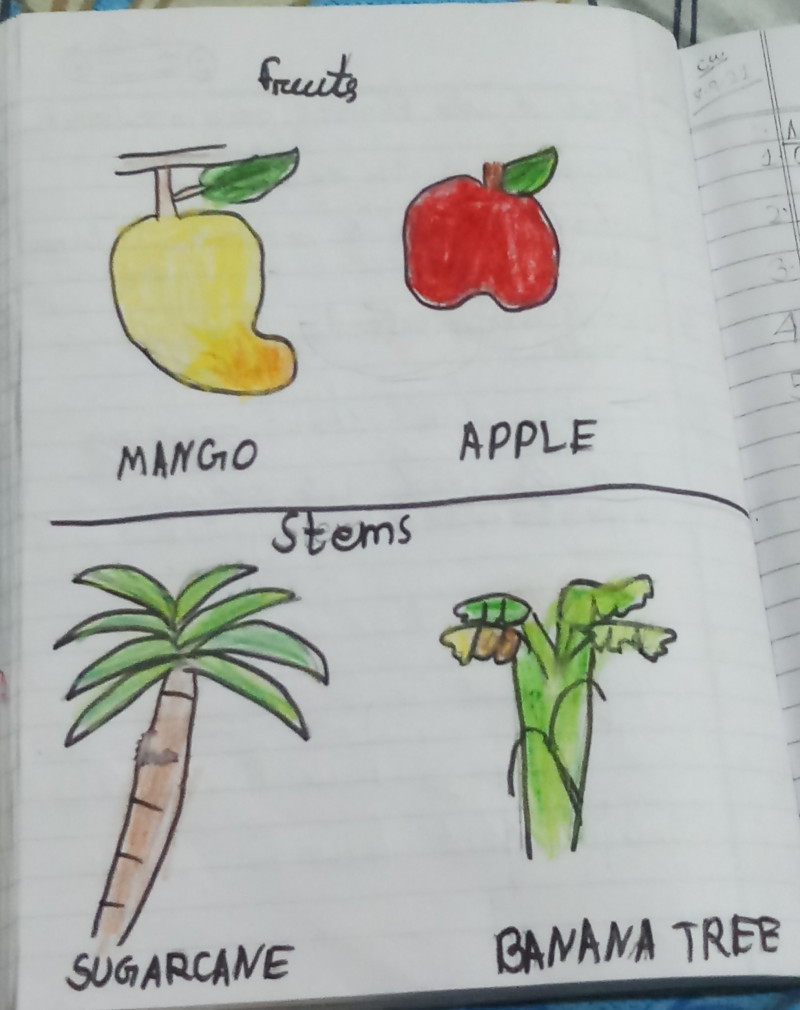 Fruits
MANGO
APPLE
Stems
SUGARCANE
BANANA TREE
CW
1
2
3
4